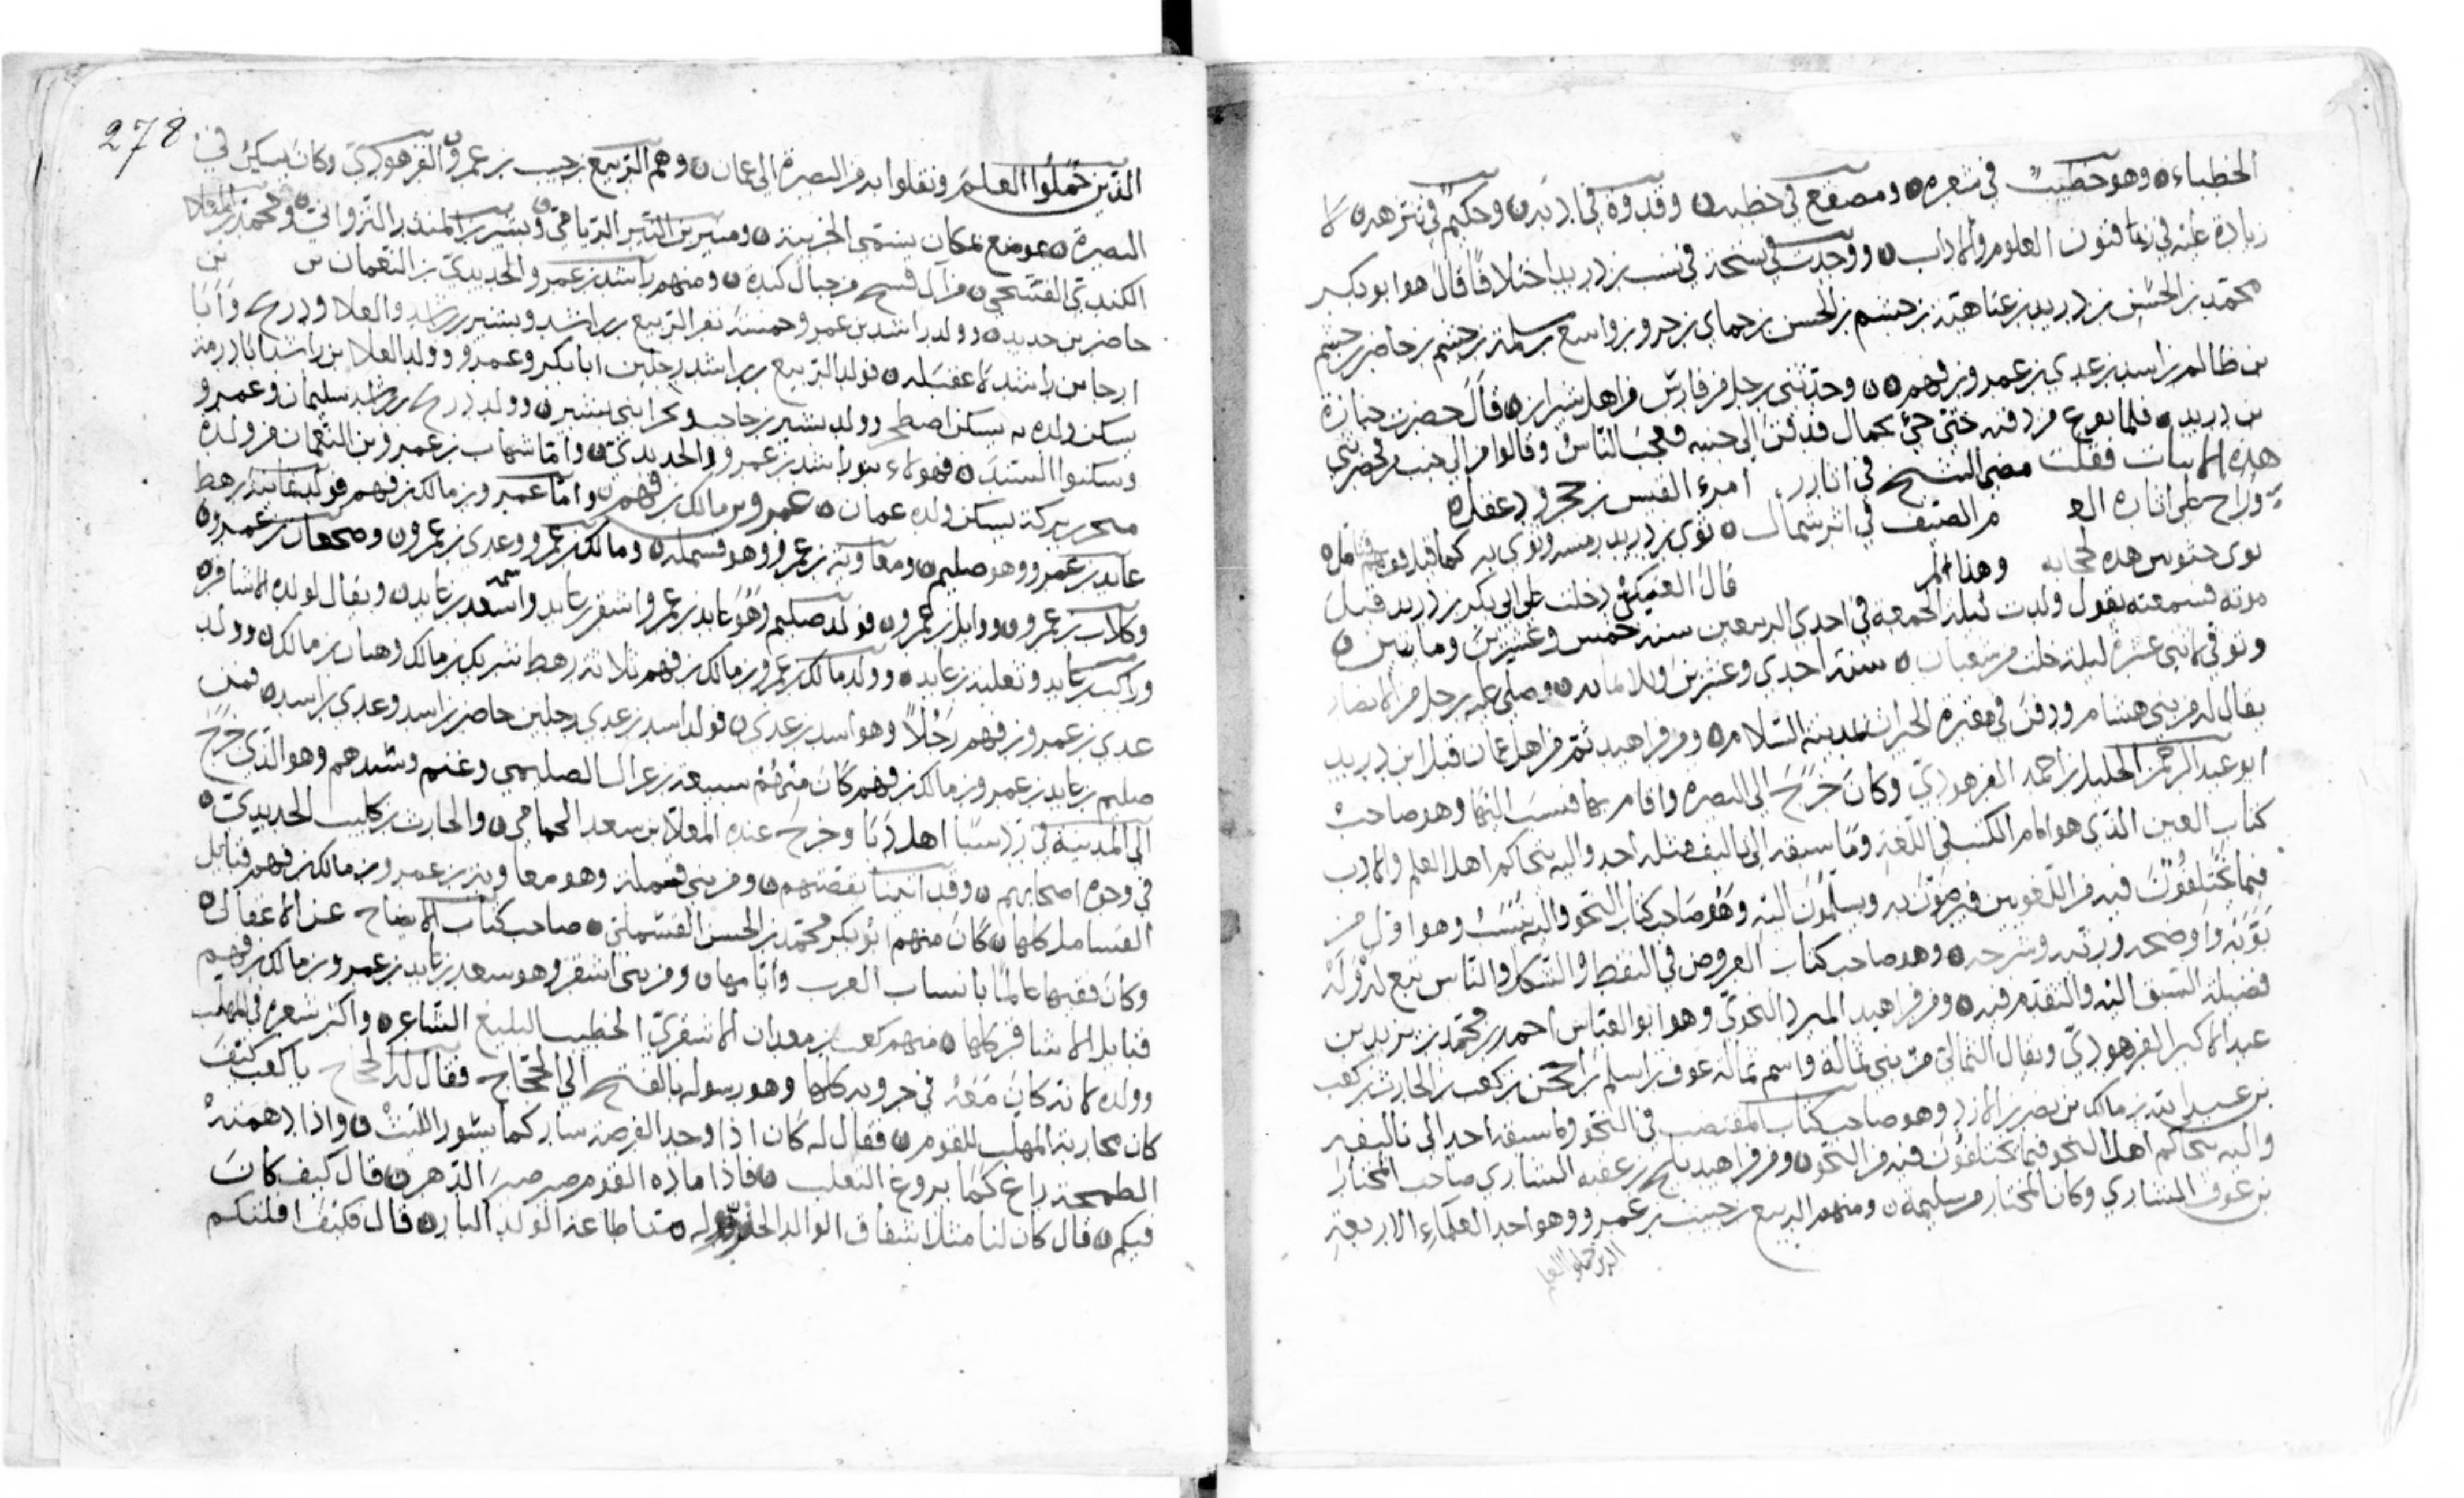 الخطباء ٥ وهو خطيب في شعره ٥ ومصقع في خطبه ٥ وقدوة في ادبه ٥ وحكيم في نثرهه ٥ لا
زيادة عليه في فنون العلوم والاداب ٥ ووجدت في نسخة في نسب بن دريد اختلافا قال هو ابو بكر
محمد بن الحسن بن دريد بن عتاهية بن حنتم بن الحسن بن حمامي بن جرو بن واسع بن سلمة بن حنتم بن حاضر بن جشم
بن ظالم بن اسد بن عدي بن عمرو بن فهم ٥٥ وحدثني رجل من فارس من اهل شيراز ٥ قال حضرت جنازة
بن دريد ٥ فلما من دفنه حتى جئ بحمال قد دفن الى جنبه فعجب الناس وقالوا من الى جنب فحضرتني
هذه الابيات فقلت مضى الشيخ في اثار امرء القيس بن حجر ودعفله
وراح على اثاره من الصيف في اثر شمال ٥ ثوى بن دريد رمسه وثوى به كما قيل
ثوى هذه وهذا
قال العتيكي دخلت على ابي بكر بن دريد قبل
موته فسمعته يقول ولدت ليلة الجمعة في احدى الربيعين سنة خمس وعشرين ومايتين ٥
وتوفي لاثني عشرة ليلة خلت من شعبان ٥ سنة احدى وعشرين وثلاثمايه ٥ وصلى عليه رجل من الانصار
يقال له من بني هشام ودفن في مقبرة الخيزران بمدينة السلام ٥ ومن فراهيد ثم من اهل عمان قبل ابن دريد
ابو عبد الرحمن الخليل بن احمد الفرهودي وكان خرج الى البصره واقام بها فنسب اليها وهو صاحب
كتاب العين الذي هو امام الكتب في اللغة وما سبقه الى تاليف مثله احد واليه يتحاكم اهل العلم والادب
فيما يختلفون فيه من اللغويين فيرضون به ويسلمون اليه وهو صاحب كتاب النحو واليه ينسب وهو اول من
بوبه واوضحه ورتبه وشرحه ٥ وهو صاحب كتاب العروض في النقط والشكل والناس تبع له وله
فضيلة السبق اليه والتقدم فيه ٥ ومن فراهيد المبرد النحوي وهو ابو العباس احمد بن محمد بن يزيد بن
عبد الاكبر الفرهودي ويقال الثمالي من بني ثماله واسم ثماله عوف بن اسلم بن احجن بن كعب بن الحارث بن كعب
بن عبد الله بن مالك بن نصر بن الازد وهو صاحب كتاب المقتضب في النحو وما سبقه احد الى تاليفه
واليه يتحاكم اهل النحو فيما يختلفون فيه من النحو ٥ ومن فراهيد بلج بن عقبه الشاري صاحب المختار
بن عوف الشاري وكان المختار من سليمه ٥ ومنهم الربيع بن حبيب بن عمرو وهو احد العلماء الاربعة
الذين حملوا العلم
278
الذين حملوا العلم ونقلوا به من البصرة الى عمان ٥ وهم الربيع بن حبيب بن عمرو الفرهودي وكان يسكن في
البصرة ٥ موضع بمكان يسمى الخريبة ٥ ومنير بن النير الريامي وبشير بن المنذر النزواني ٥ ومحمد بن المعلا
الكندي الفشحي ٥ من ال فسح من جبال كنده ٥ ومنهم راشد بن عمرو الحديدي بن النعمان بن
حاضر بن حديد ٥ وولد راشد بن عمرو خمسة نفر الربيع بن راشد وبشير بن راشد والعلا ودرع وابا
ارحا بن راشد لا عقب له ٥ فولد الربيع بن راشد رجلين ابا بكر وعمرو وولد العلا بن راشد
يسكن ولده به يسكن اصطخر وولد بشير بن حاجب وبحرا بني بشير ٥ وولد درع بن راشد سليمان وعمرو
وسكنوا السند ٥ فهولاء بنو راشد بن عمرو والحديدي ٥ واما شهاب بن عمرو بن النعمان فمن ولده
بركة يسكن ولده عمان ٥ عمرو بن مالك بن فهم ٥ واما عمرو بن مالك بن فهم فولد ثمانية رهط
عايد بن عمرو وهو صليم ٥ ومعاوية بن عمرو وهو قسملة ٥ ومالك بن عمرو وعدي بن عمرو ٥ بن عمرو ٥
وكلاب بن عمرو ٥ ووايل بن عمرو ٥ فولد صليم وهو عايد بن عمرو اشقر بن عايد واسعد بن عايد ٥ ويقال لولده الاشاقره
وراكب بن عايد وثعلبة بن عايد ٥ وولد مالك بن عمرو بن مالك بن فهم ثلاثة رهط شريك بن مالك وهبان بن مالك ٥ وولد
عدي بن عمرو بن فهم رجلا وهو اسد بن عدي ٥ فولد اسد بن عدي رجلين حاضر بن اسد وعدي بن اسد ٥ فمن
صليم بن عايد بن عمرو بن مالك بن فهم كان منهم سبيعة بن عرال الصليمي وعتيم وشيدهم وهو الذي خرج
الى المدينة في اهل دبا وخرج عنده المعلا بن سعد الحمامي ٥ والحارث بن كليب الحديدي ٥
في وجوه اصحابهم ٥ وقد اتينا بقصتهم ٥ ومن بني قسملة وهو معاوية بن عمرو بن مالك بن فهم قبايل
القسامل كلها ٥ كان منهم ابو بكر محمد بن الحسن القسملي ٥ صاحب كتاب الايضاح عن الاغفال ٥
وكان فقيها عالما بانساب العرب وايامها ٥ ومن بني اشقر وهو سعد بن عايد بن عمرو بن مالك بن فهم
قبايل الاشاقر كلها ٥ منهم كعب بن معدان الاشقري الخطيب البليغ الشاعر ٥ واكثر شعره في المهلب
وولده لانه كان معه في حروبه كلها وهو رسوله بالفتح الى الحجاج فقال له الحجاج يا كعب كيف
كان محاربة المهلب للقوم ٥ فقال له كان اذا وجد الفرصة سار كما يسور الليث ٥ واذا دهمته
الطمحة راغ كما يروغ الثعلب ٥ فاذا ماده القوم صبر صبر الدهر ٥ قال كيف كان
فيكم ٥ قال كان لنا مثل اشفاق الوالد ٥ منا طاعة الولد البار ٥ قال فكيف افلتكم